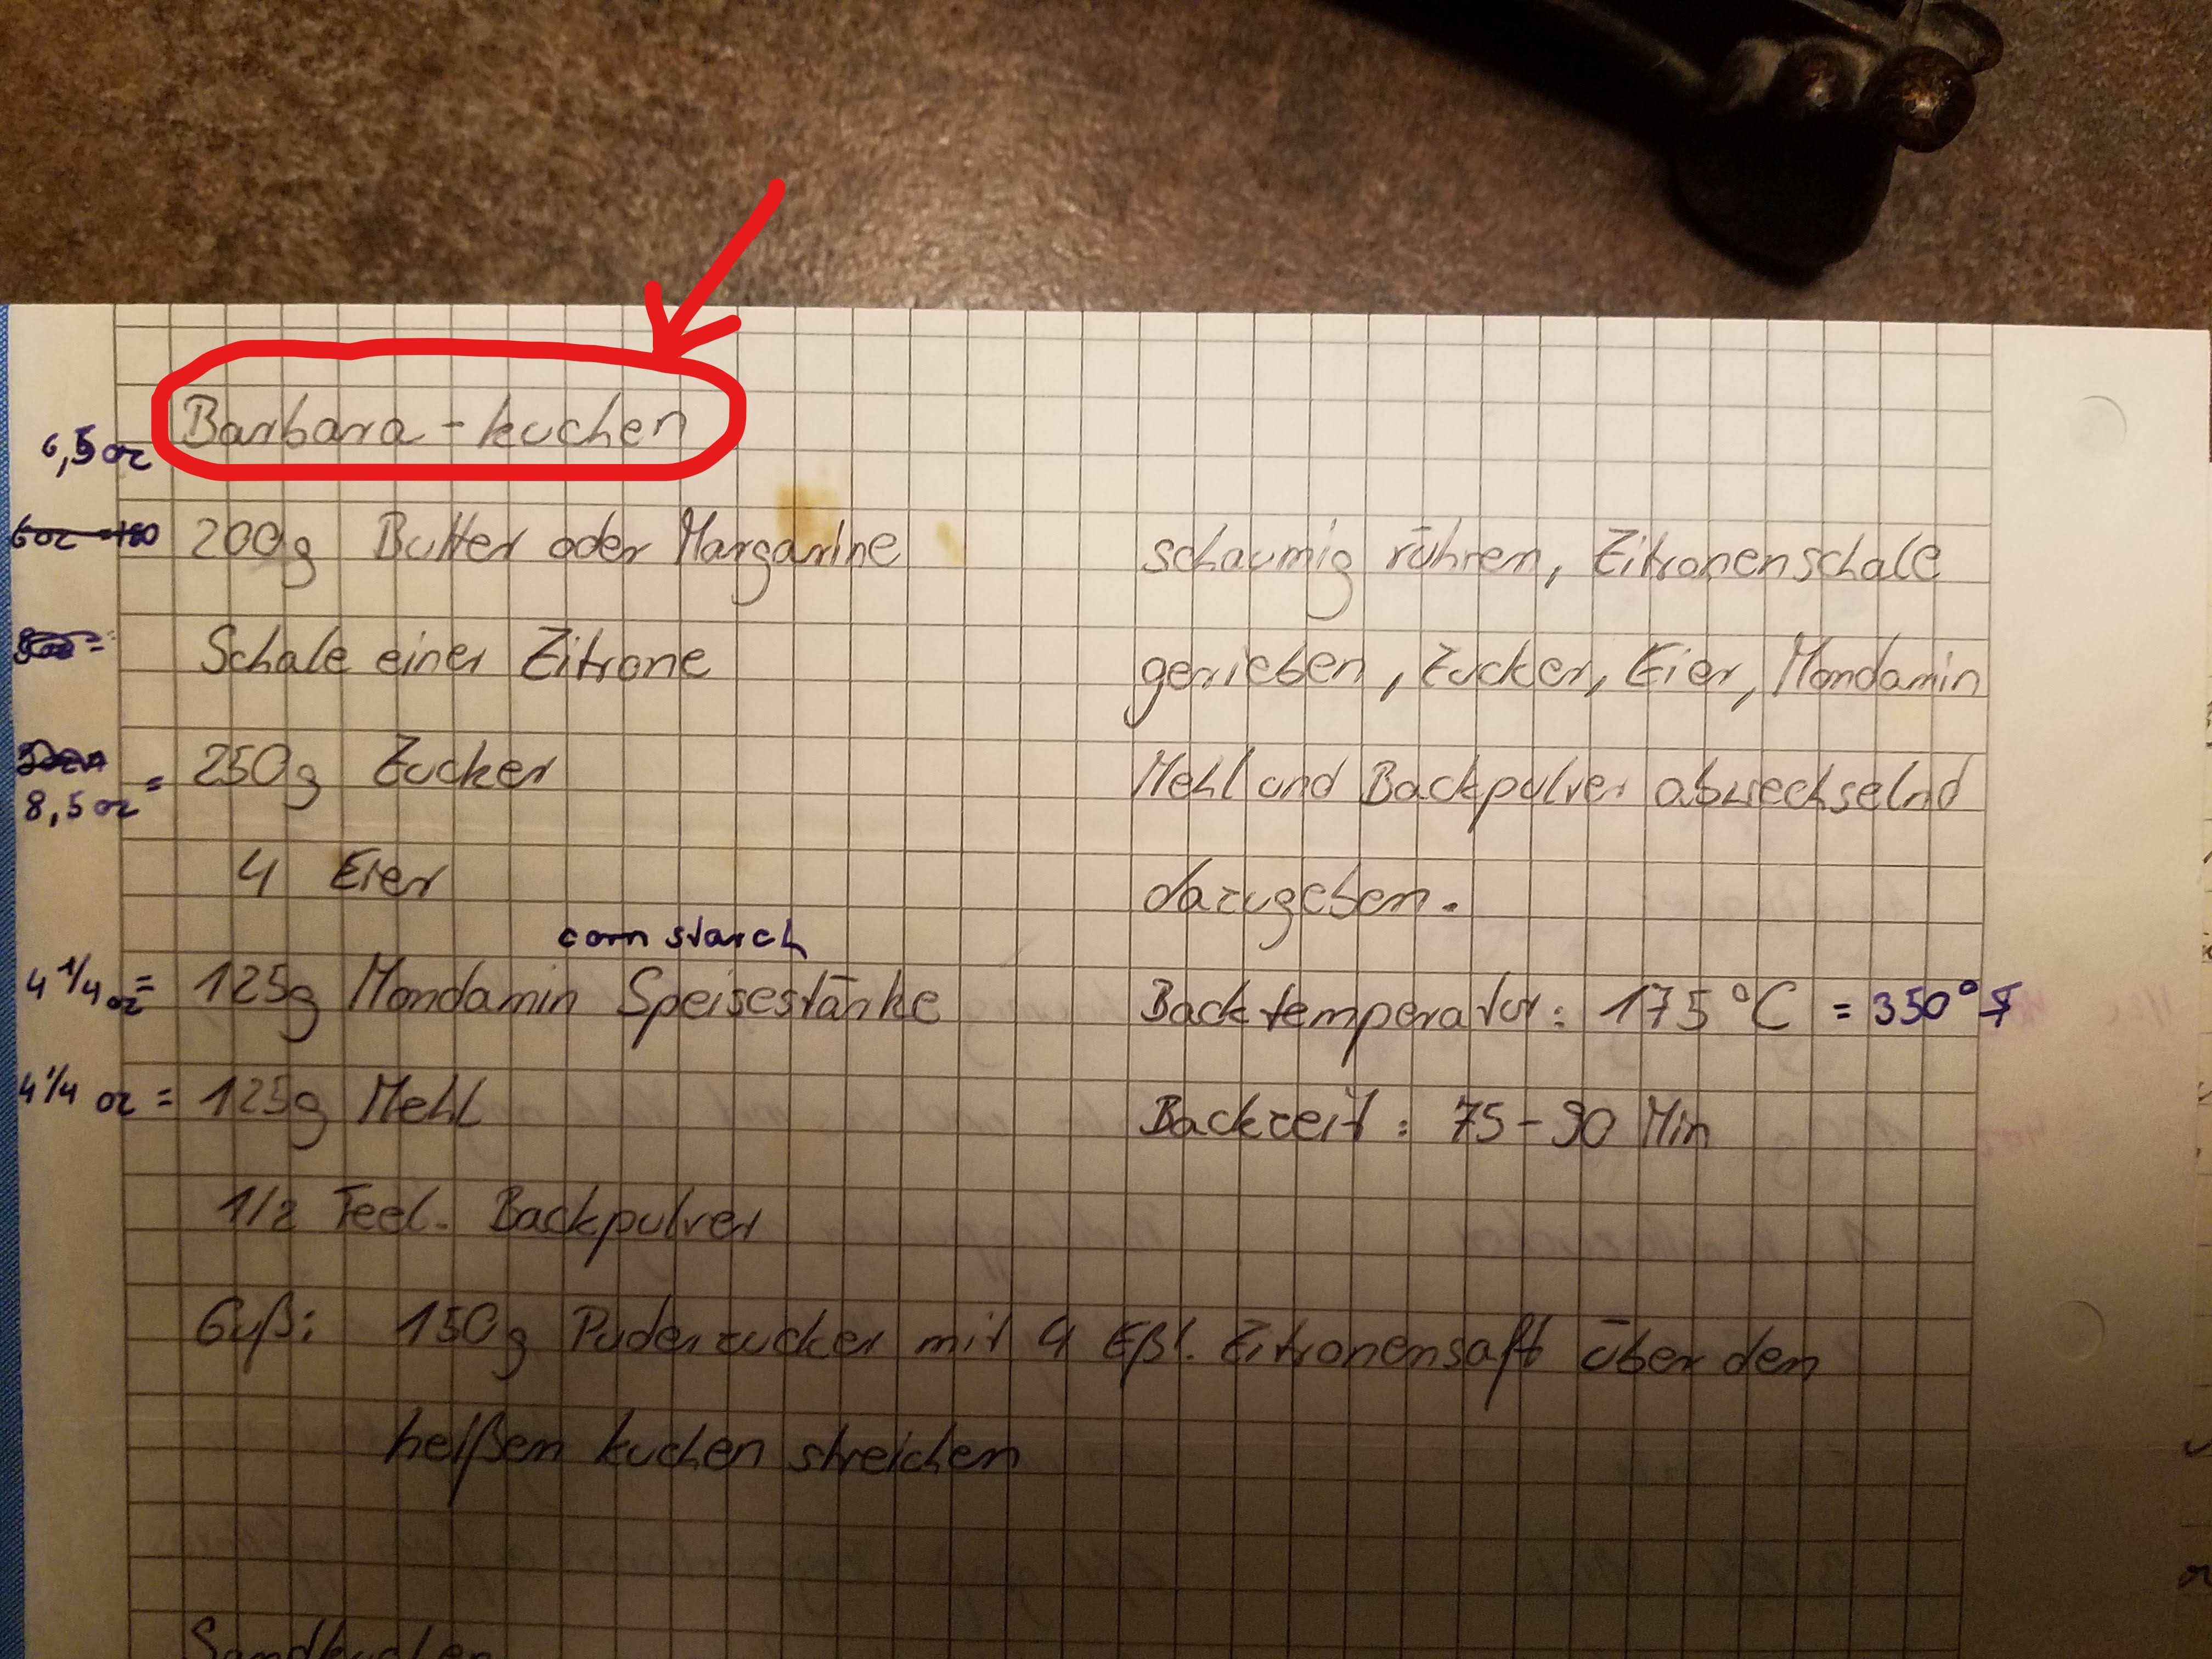 Barbara-kuchen
6,5 oz
200g Butter oder Margarine
Schale einer Zitrone
8,5 oz = 250g Zucker
4 Eier
corn starch
4 1/4 oz = 125g Mondamin Speisestärke
4 1/4 oz = 125g Mehl
1/2 Teel. Backpulver
schaumig rühren, Zitronenschale
gerieben, Zucker, Eier, Mondamin
Mehl und Backpulver abwechselnd
dazugeben.
Backtemperatur: 175°C = 350°F
Backzeit: 75-90 Min
Guß: 150g Puderzucker mit 4 Eßl. Zitronensaft über den
heißen kuchen streichen
Sandkuchen